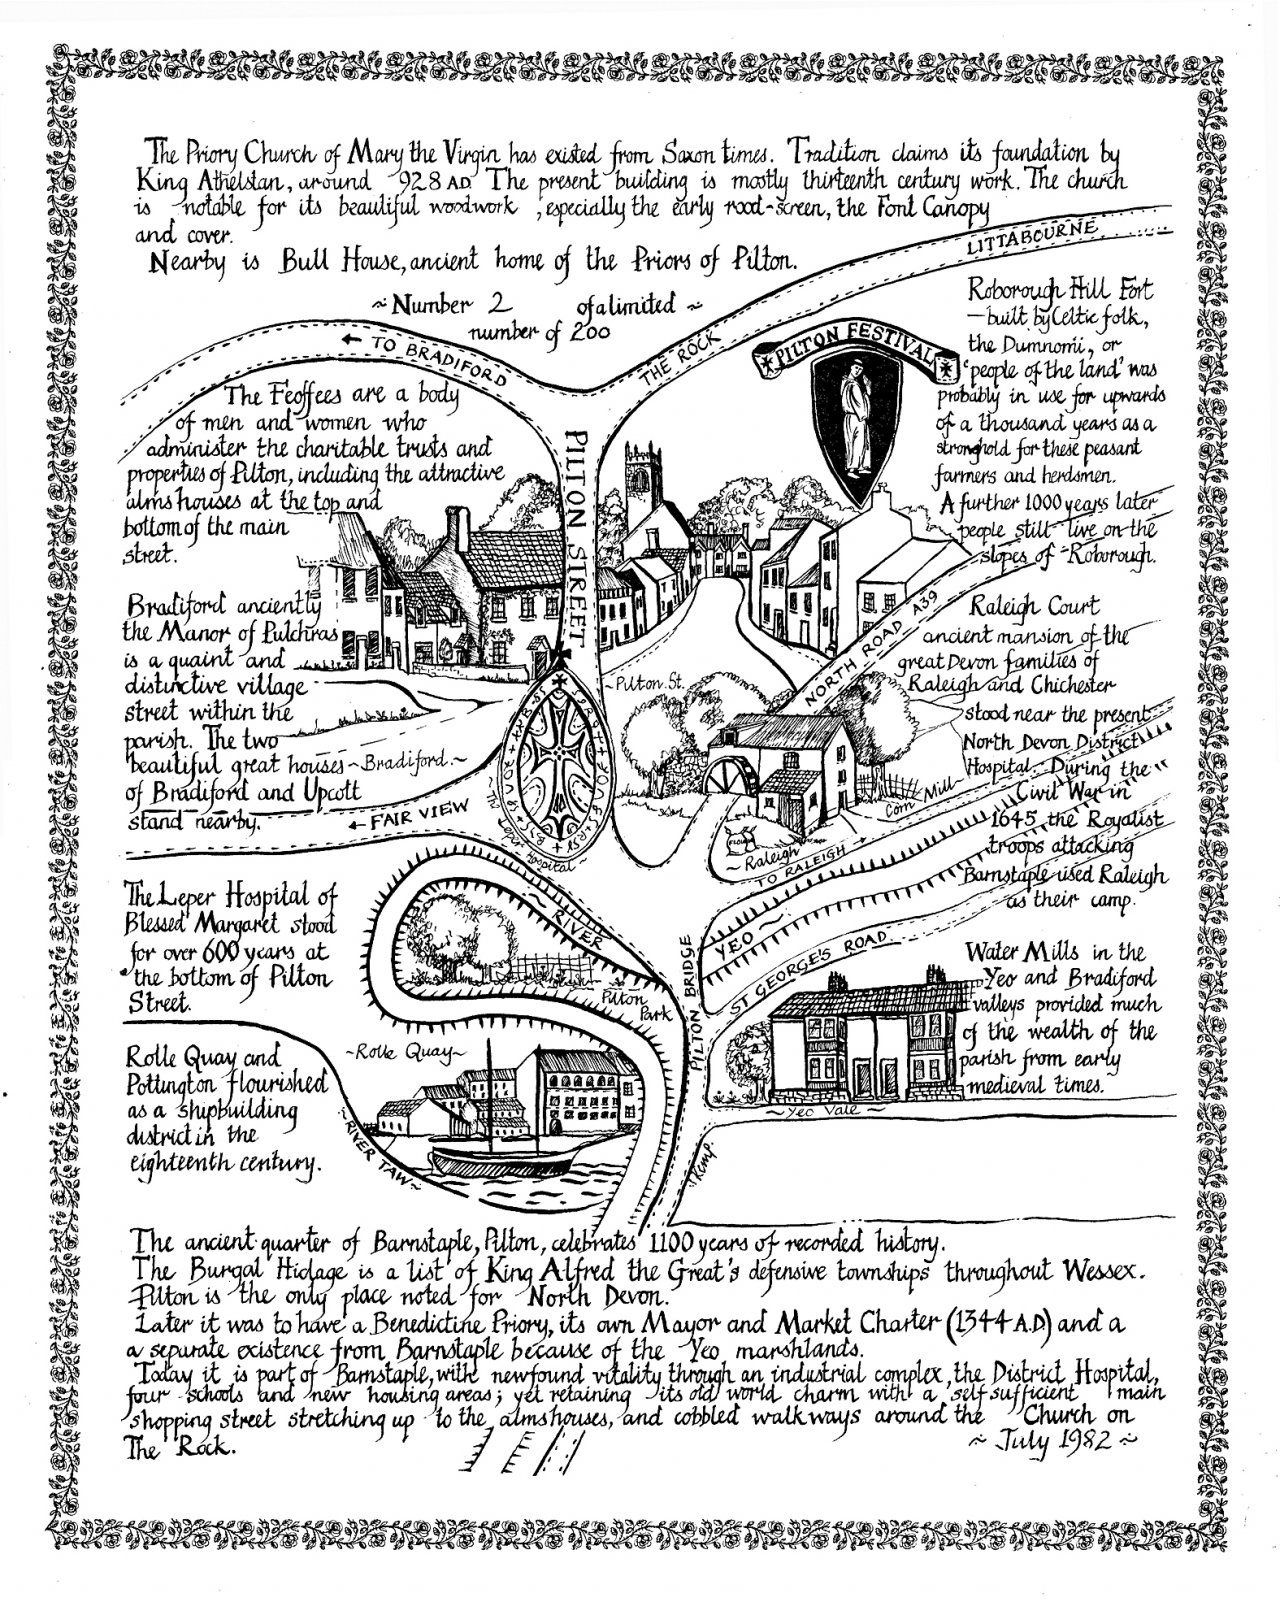 The Priory Church of Mary the Virgin has existed from Saxon times. Tradition claims its foundation by
King Athelstan, around 928 AD The present building is mostly thirteenth century work. The church
is notable for its beautiful woodwork, especially the early rood-screen, the Font Canopy
and cover.
Nearby is Bull House, ancient home of the Priors of Pilton.
~ Number 2 of a limited ~
number of 200
LITTABOURNE
THE ROCK
← TO BRADIFORD
PILTON FESTIVAL
PILTON STREET
The Feoffees are a body
of men and women who
administer the charitable trusts and
properties of Pilton, including the attractive
alms houses at the top and
bottom of the main
street.
Roborough Hill Fort
— built by Celtic folk,
the Dumnonii, or
'people of the land' was
probably in use for upwards
of a thousand years as a
stronghold for these peasant
farmers and herdsmen.
A further 1000 years later
people still live on the
slopes of Roborough.
Bradiford anciently
the Manor of Pulchras
is a quaint and
distinctive village
street within the
parish. The two
beautiful great houses
of Bradiford and Upcott
stand nearby.
~Bradiford.~
← FAIR VIEW
~Pilton St.
NORTH ROAD A39
Raleigh Court
ancient mansion of the
great Devon families of
Raleigh and Chichester
stood near the present
North Devon District
Hospital. During the
Civil War in
1645 the Royalist
troops attacking
Barnstaple used Raleigh
as their camp.
Corn Mill
~ Raleigh
TO RALEIGH →
The Leper Hospital~
The Leper Hospital of
Blessed Margaret stood
for over 600 years at
the bottom of Pilton
Street.
RIVER
YEO
Pilton
Park
PILTON BRIDGE
ST GEORGE'S ROAD
Water Mills in the
Yeo and Bradiford
valleys provided much
of the wealth of the
parish from early
medieval times.
~ Yeo Vale ~
Rolle Quay and
Pottington flourished
as a shipbuilding
district in the
eighteenth century.
~Rolle Quay~
~RIVER TAW~
The ancient quarter of Barnstaple, Pilton, celebrates 1100 years of recorded history.
The Burgal Hidage is a list of King Alfred the Great's defensive townships throughout Wessex.
Pilton is the only place noted for North Devon.
Later it was to have a Benedictine Priory, its own Mayor and Market Charter (1344 A.D) and a
a separate existence from Barnstaple because of the Yeo marshlands.
Today it is part of Barnstaple, with newfound vitality through an industrial complex, the District Hospital,
four schools and new housing areas; yet retaining its old world charm with a self sufficient main
shopping street stretching up to the almshouses, and cobbled walkways around the Church on
The Rock.
~ July 1982 ~